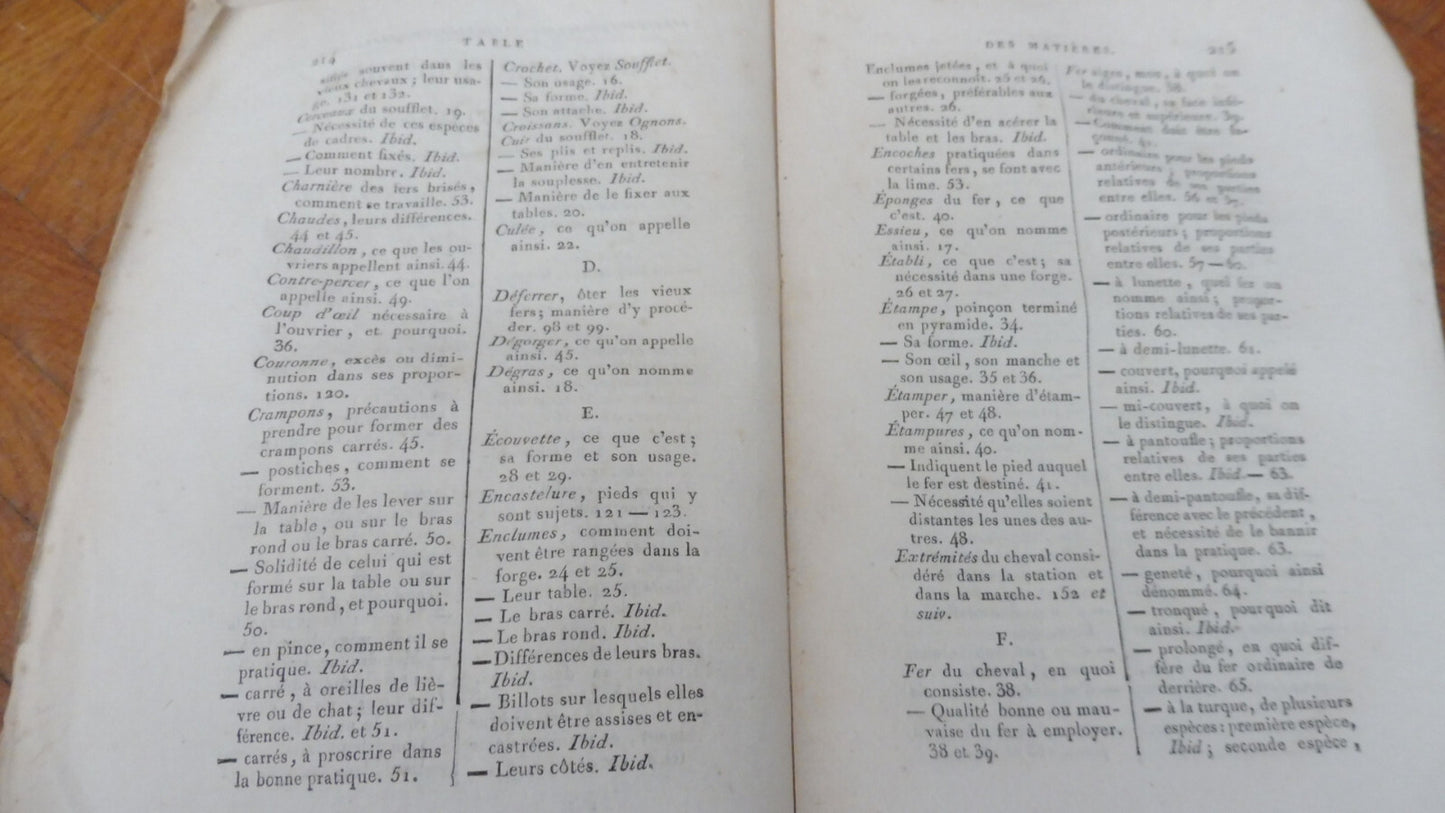 214
TABLE
souvent dans les
vieux chevaux ; leur usa-
ge. 131 et 132.
Cerceaux du soufflet. 19.
— Nécessité de ces espèces
de cadres. Ibid.
— Comment fixés. Ibid.
— Leur nombre. Ibid.
Charnière des fers brisés,
comment se travaille. 53.
Chaudes, leurs différences.
44 et 45.
Chaudillon, ce que les ou-
vriers appellent ainsi. 44.
Contre-percer, ce que l'on
appelle ainsi. 49.
Coup d'œil nécessaire à
l'ouvrier, et pourquoi.
36.
Couronne, excès ou dimi-
nution dans ses propor-
tions. 120.
Crampons, précautions à
prendre pour former des
crampons carrés. 45.
— postiches, comment se
forment. 53.
— Manière de les lever sur
la table, ou sur le bras
rond ou le bras carré. 50.
— Solidité de celui qui est
formé sur la table ou sur
le bras rond, et pourquoi.
50.
— en pince, comment il se
pratique. Ibid.
— carré, à oreilles de liè-
vre ou de chat ; leur dif-
férence. Ibid. et 51.
— carrés, à proscrire dans
la bonne pratique. 51.
Crochet. Voyez Soufflet.
— Son usage. 16.
— Sa forme. Ibid.
— Son attache. Ibid.
Croissans. Voyez Ognons.
Cuir du soufflet. 18.
— Ses plis et replis. Ibid.
— Manière d'en entretenir
la souplesse. Ibid.
— Manière de le fixer aux
tables. 20.
Culée, ce qu'on appelle
ainsi. 22.
D.
Déferrer, ôter les vieux
fers ; manière d'y procé-
der. 98 et 99.
Dégorger, ce qu'on appelle
ainsi. 45.
Dégras, ce qu'on nomme
ainsi. 18.
E.
Écouvette, ce que c'est ;
sa forme et son usage.
28 et 29.
Encastelure, pieds qui y
sont sujets. 121 — 123.
Enclumes, comment doi-
vent être rangées dans la
forge. 24 et 25.
— Leur table. 25.
— Le bras carré. Ibid.
— Le bras rond. Ibid.
— Différences de leurs bras.
Ibid.
— Billots sur lesquels elles
doivent être assises et en-
castrées. Ibid.
— Leurs côtés. Ibid.
DES MATIÈRES.
215
Enclumes jetées, et à quoi
on les reconnoît. 25 et 26.
— forgées, préférables aux
autres. 26.
— Nécessité d'en acérer la
table et les bras. Ibid.
Encoches pratiquées dans
certains fers, se font avec
la lime. 53.
Éponges du fer, ce que
c'est. 40.
Essieu, ce qu'on nomme
ainsi. 17.
Établi, ce que c'est ; sa
nécessité dans une forge.
26 et 27.
Étampe, poinçon terminé
en pyramide. 34.
— Sa forme. Ibid.
— Son œil, son manche et
son usage. 35 et 36.
Étamper, manière d'étam-
per. 47 et 48.
Étampures, ce qu'on nom-
me ainsi. 40.
— Indiquent le pied auquel
le fer est destiné. 41.
— Nécessité qu'elles soient
distantes les unes des au-
tres. 48.
Extrémités du cheval consi-
déré dans la station et
dans la marche. 152 et
suiv.
F.
Fer du cheval, en quoi
consiste. 38.
— Qualité bonne ou mau-
vaise du fer à employer.
38 et 39.
Fer aigre, mou, à quoi on
le distingue. 38.
— du cheval, sa face infé-
rieure et supérieure. 39.
— Comment doit être
41.
— ordinaire pour les pieds
antérieurs ; proportions
relatives de ses parties
entre elles. 56 et
— ordinaire pour les pieds
postérieurs ; proportions
relatives de ses parties
entre elles. 57 — 60.
— à lunette, quel fer on
nomme ainsi ; propor-
tions relatives de ses par-
ties. 60.
— à demi-lunette. 61.
— couvert, pourquoi appelé
ainsi. Ibid.
— mi-couvert, à quoi on
le distingue. Ibid.
— à pantoufle ; proportions
relatives de ses parties
entre elles. Ibid. — 63.
— à demi-pantoufle, sa dif-
férence avec le précédent,
et nécessité de le bannir
dans la pratique. 63.
— geneté, pourquoi ainsi
dénommé. 64.
— tronqué, pourquoi dit
ainsi. Ibid.
— prolongé, en quoi dif-
fère du fer ordinaire de
derrière. 65.
— à la turque, de plusieurs
espèces : première espèce,
Ibid ; seconde espèce,